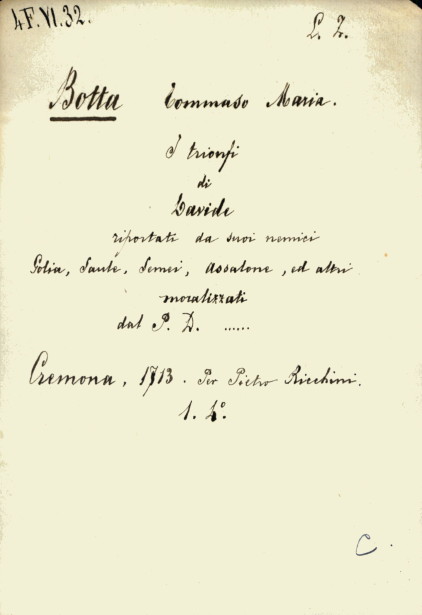 4F.VI.32.
L. Z.
Botta Tommaso Maria.
I trionfi
di
Davide
riportati da suoi nemici
Golia, Saule, Semei, Assalone, ed altri
moralizzati
dal P. D. ......
Cremona, 1713. Per Pietro Ricchini.
1. 4°.
C